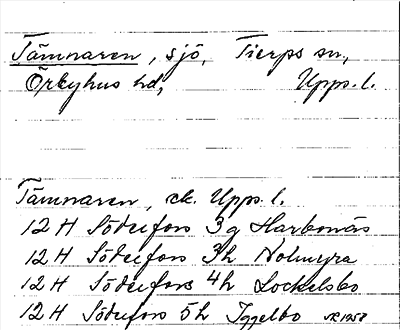 Tämnaren, sjö, Tierps sn,
Örbyhus hd, Upps. l.
Tämnaren, ek. Upps. l.
12 H Söderfors 3g Harbonäs
12 H Söderfors 3h Nolmyra
12 H Söderfors 4h Sockelsbo
12 H Söderfors 5h Iggelbo